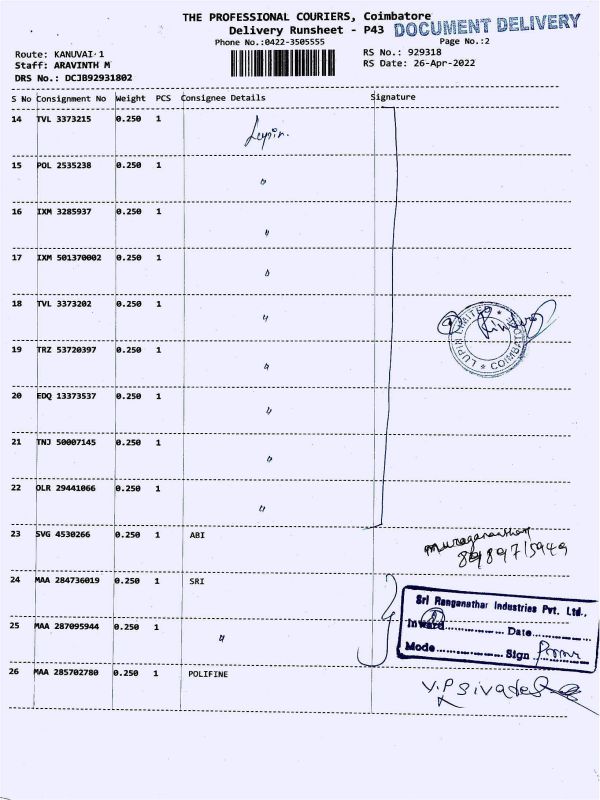 THE PROFESSIONAL COURIERS, Coimbatore
Delivery Runsheet - P43 DOCUMENT DELIVERY
Phone No.:0422-3505555 Page No.:2
Route: KANUVAI 1 RS No.: 929318
Staff: ARAVINTH M RS Date: 26-Apr-2022
DRS No.: DCJB92931802
S No Consignment No Weight PCS Consignee Details Signature
14 TVL 3373215 0.250 1 Lupin.
15 POL 2535238 0.250 1 "
16 IXM 3285937 0.250 1 "
17 IXM 501370002 0.250 1 "
18 TVL 3373202 0.250 1 "
LUPIN LIMITED * COIMBATORE *
19 TRZ 53720397 0.250 1 "
20 EDQ 13373537 0.250 1 "
21 TNJ 50007145 0.250 1 "
22 OLR 29441066 0.250 1 "
23 SVG 4530266 0.250 1 ABI
24 MAA 284736019 0.250 1 SRI
Sri Ranganathar Industries Pvt. Ltd.,
Inward Date
25 MAA 287095944 0.250 1 "
Mode Sign
26 MAA 285702780 0.250 1 POLIFINE